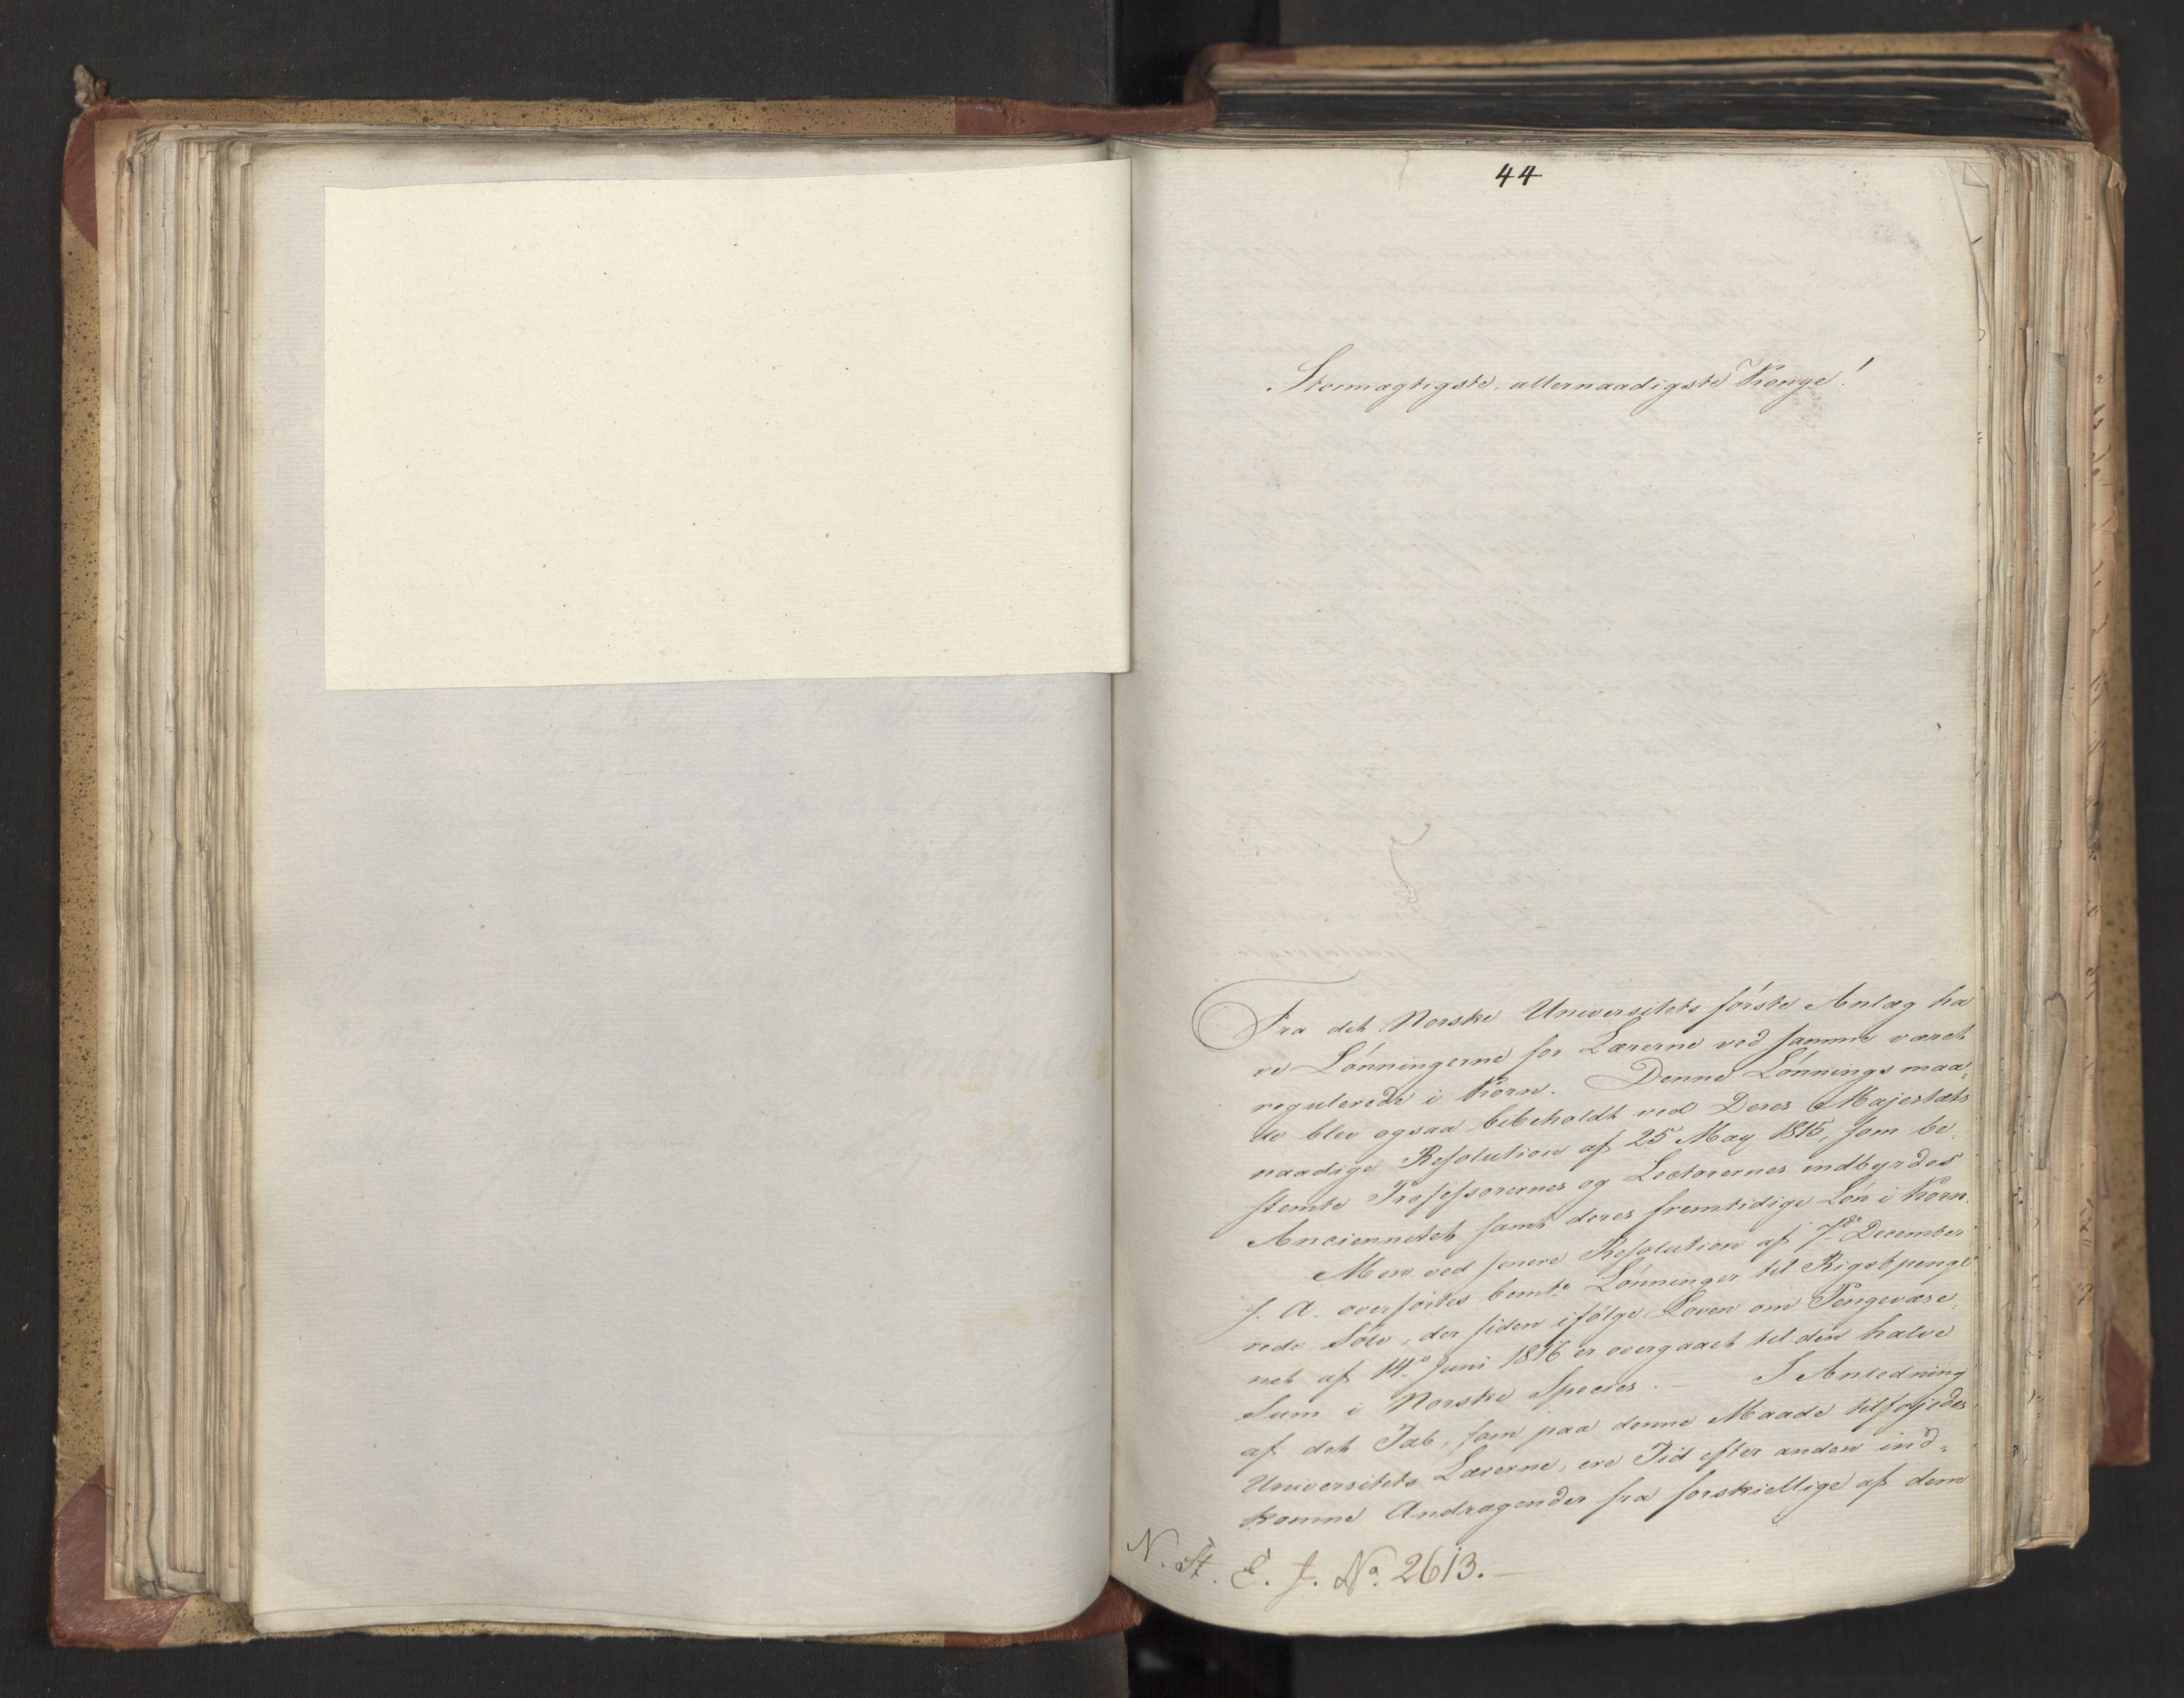 44
Stormægtigste, allernaadigste Konge!
Fra det Norske Universitets første Anlæg ha
ve Lønningerne for Lærerne ved samme været
regulerede i Korn. Denne Lønningsmaa-
de blev ogsaa bibeholdt ved Deres Majestæts
naadige Resolution af 25 May 1815, som be-
stemte Professorernes og Lectorernes indbyrdes
Anciennitet samt deres fremtidige Løn i Korn.
Men ved senere Resolution af 7de December
s. A. overførtes bemte Lønninger til Rigsbpenge
rede Sølv, der siden ifølge Loven om Pengevæse-
net af 14de Juni 1816 er overgaaet til den halve
Sum i Norske Species. - I Anledning
af det Tab, som paa denne Maade tilføjedes
Universitets Lærerne, ere Tid efter anden ind-
komne Andragender fra forskiellige af dem
N. St. E. J. No. 2613. -